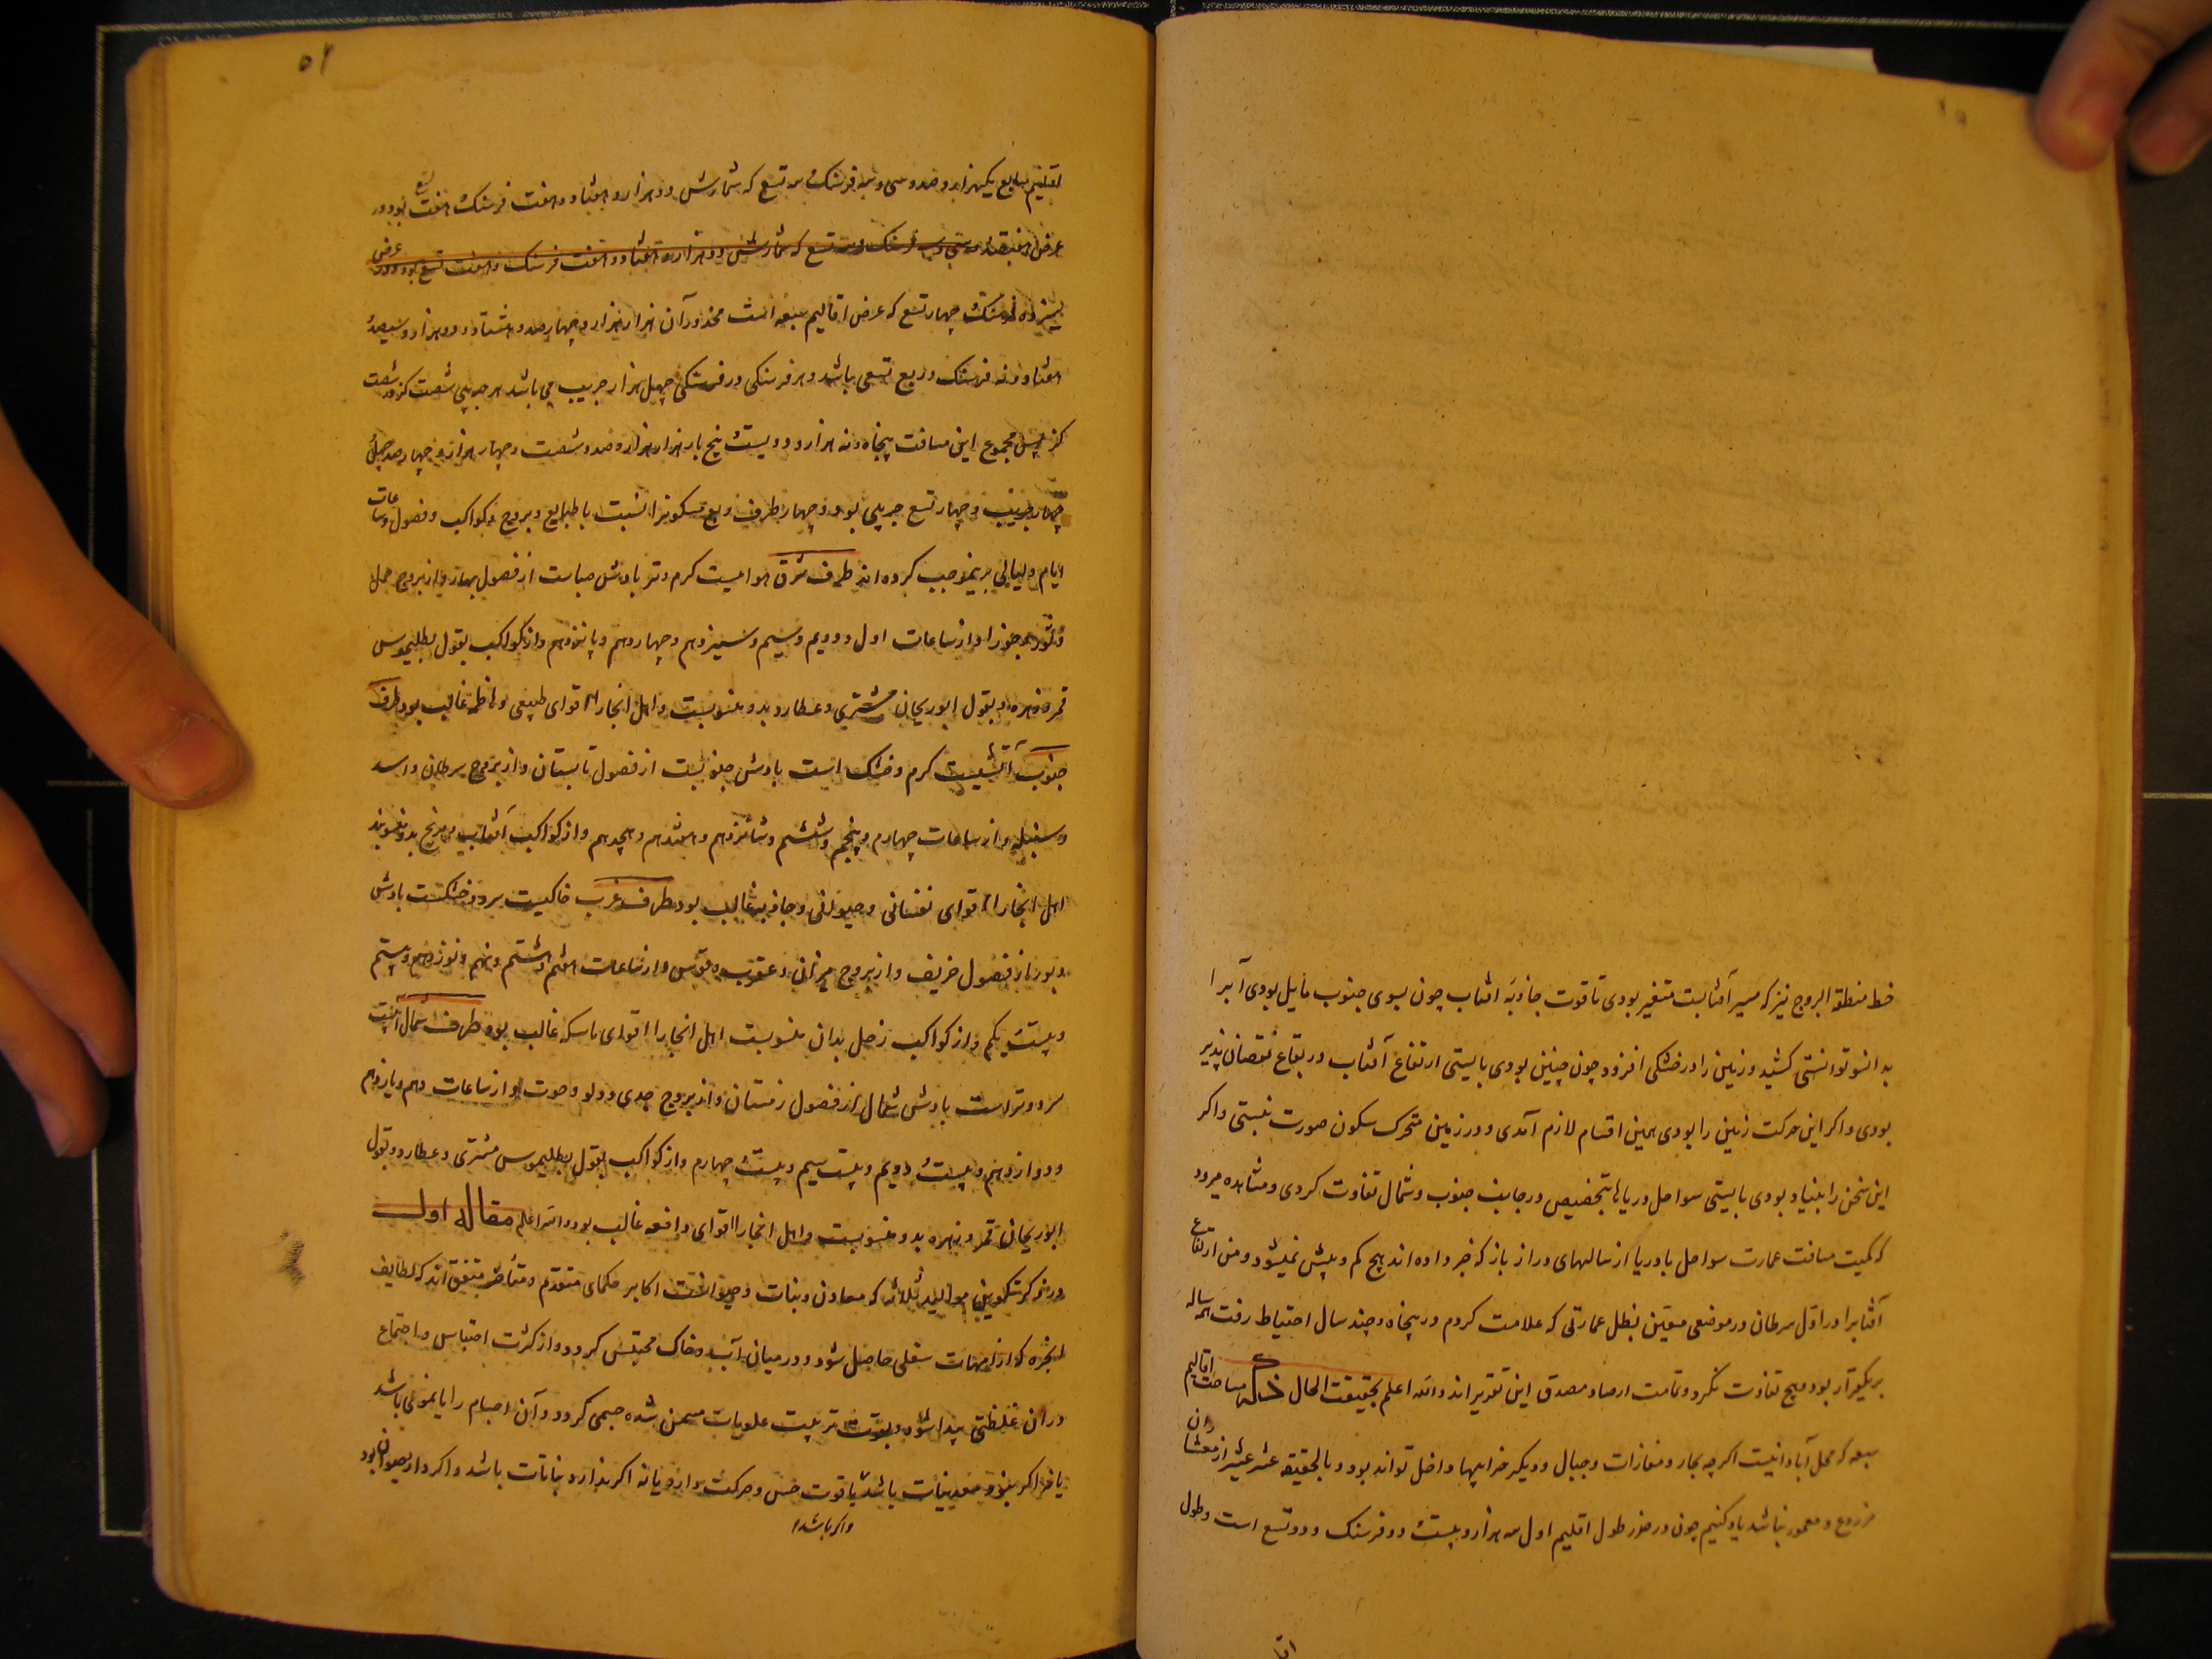 خط منطقة البروج نیز که مسیر آفتابست متغیر بودی تا قوت جاذبه افتاب چون بسوی جنوب مایل بودی آبرا
بدانسو توانستی کشید و زمین را در خشکی افزود چون چنین بودی بایستی ارتفاع آفتاب در بقاع نقصان پذیر
بودی و اکر این حرکت زمین را بودی همین اقسام لازم آمدی و در زمین متحرک سکون صورت نبستی و اکر
این سخن را بنیاد بودی بایستی سواحل دریاها بتخصیص در جانب جنوب و شمال تفاوت کردی و مشاهده میرود
که کمیت مسافت عمارت سواحل با دریا از سالهای دراز باز که خبر داده اند هیچ کم و بیش نمیشود و من ارتفاع
آفتابرا در اول سرطان در موضعی معین بظل عمارتی که علامت کردم در پنجاه و چند سال احتیاط رفت همه ساله
بریکقرار بود و هیچ تفاوت نکرد و تمامت ارصاد مصدق این تقریر اند والله اعلم بحقیقت الحال ذکر مساحت اقالیم
سبعه که محل آبادانیست اکرچه بحار و مفازات و جبال و دیکر خرابیها داخل تواند بود و بالحقیقه عشر عشیر از معشار آن
مزروع و معمور نباشد یاد کنیم چون در طول اقلیم اول سه هزار و بیست و دو فرسنک و دو تسع است و طول
اقا
۵۲
اقلیم سابع یکهزار و صد و سی و سه فرسنک و سه تسع که شمارش دو هزار و هفتاد و هفت فرسنک هفت تسع بود و در
عرض هفتصد و سی و سه فرسنک و سه تسع که شمارش دو هزار و هفتاد و هفت فرسنک و هفت تسع بود و در عرض
سیزده فرسنک چهار تسع که عرض اقالیم سبعه است آن هزار هزار و چهارصد و هشتاد و دو هزار و سیصد و
هفتاد و نه فرسنک و ربع تسعی باشد و هر فرسنکی در فرسنکی چهل هزار جریب می باشد هر جریبی شصت کز در شصت
کز پس مجموع این مسافت پنجاه و نه هزار و دویست و پنج بار هزار هزار و صد و شصت و چهار هزار و چهارصد و چهل و
چهار جریب و چهار تسع جریبی بود و چهار طرف ربع مسکونرا نسبت با طبایع و بروج و کواکب و فصول و ساعات
ایام و لیالی برینموجب کرده اند طرف شرق هواییست کرم و تر بادش صباست از فصول بهار و از بروج حمل
و ثور و جوزا و از ساعات اول و دویم و سیم و سیزدهم و چهاردهم و پانزدهم و از کواکب بقول بطلیموس
قمر و زهره و بقول ابوریحان مشتری و عطارد بدو منسوبست و اهل انجارا قوای طبیعی و هاضمه غالب بود طرف
جنوب آتشیست کرم و خشک است بادش جنوبست از فصول تابستان و از بروج سرطان و اسد
و سنبله و از ساعات چهارم و پنجم و ششم و شانزدهم و هفتدهم و هیجدهم و از کواکب آفتاب و مریخ بدو منسوبند
اهل انجارا قوای نفسانی و حیوانی و جاذبه غالب بود طرف غرب خاکیست سرد و خشکست بادش
دبور از فصول خریف و از بروج میزان و عقرب و قوس و از ساعات هفتم و هشتم و نهم و نوزدهم و بیستم
و بیست و یکم و از کواکب زحل بدان منسوبست اهل انجارا قوای ماسکه غالب بود طرف شمال آبیست
سرد و تر است بادش شمال از فصول زمستان و از بروج جدی و دلو و حوت و از ساعات دهم و یازدهم
و دوازدهم و بیست و دویم و بیست سیم و بیست و چهارم و از کواکب بقول بطلیموس مشتری و عطارد و بقول
ابوریحان قمر و زهره بدو منسوبست و اهل انجارا قوای دافعه غالب بود والله اعلم مقاله اول
در ذکر تکوین موالید ثلاثه که معادن و نبات و حیوانست اکابر حکمای متقدم و متأخر متفق اند که لطایف
ابخره که از امهات سفلی حاصل شود و در میان آب و خاک محتبس کردد و از کثرت احتباس و اجتماع
در آن غلظتی پیدا شود و بقوت تربیت علویات شده جسمی کردد و آن اجسام را یا نمو نباشد
یا اکر بنو و معدنیات باشد یا قوت حس و حرکت دارد یا نه اکر ندارد نباتات باشد و اکر دارد حیوان بود
و اکر باشد